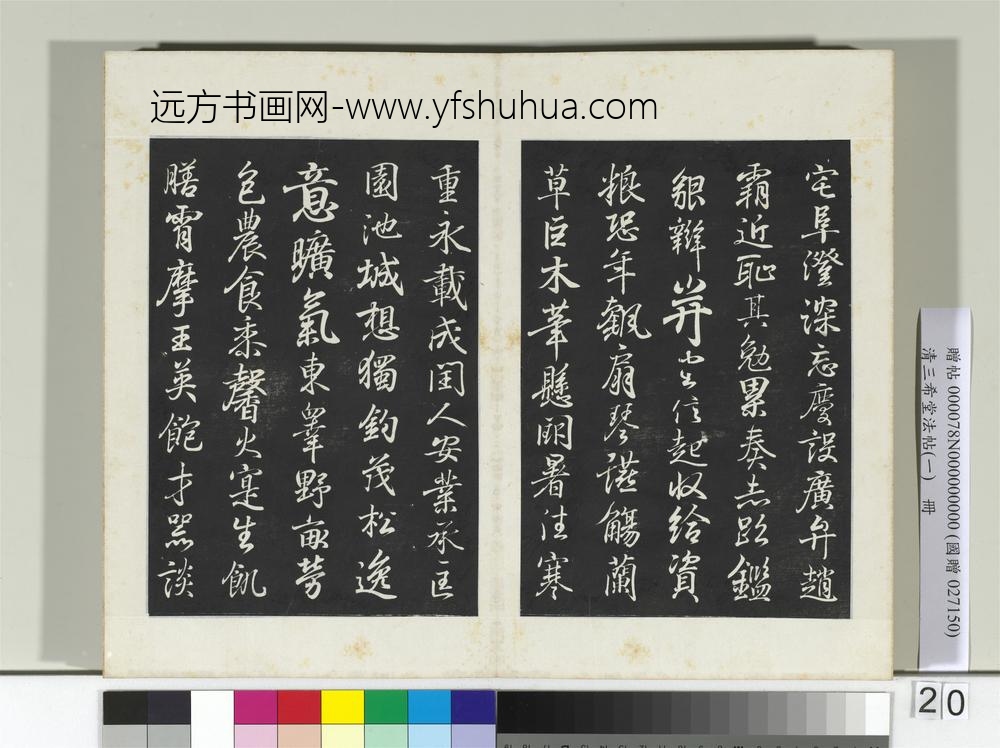 远方书画网-www.yfshuhua.com
宅阜澄深忘慶設廣弁趙
霸近恥其勉累奏志趾鑑
貌辨並也信起收給資
粮恐年觀扇琴諶觴蘭
草巨木華懸朗暑往寒
重永載成閏人安業承匡
園池城想獨鈞茂松逸
意曠氣東宰野畝勞
包農食黍馨火寔生飢
膳霄摩王英飽才器談
贈帖 000078N000000000 (國贈 027150)
清三希堂法帖(一) 冊
20